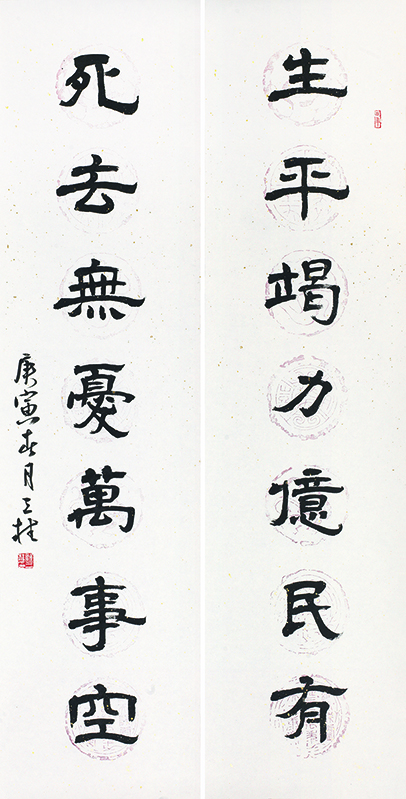 生平竭力億民有
死去無憂萬事空
庚寅春月三桂